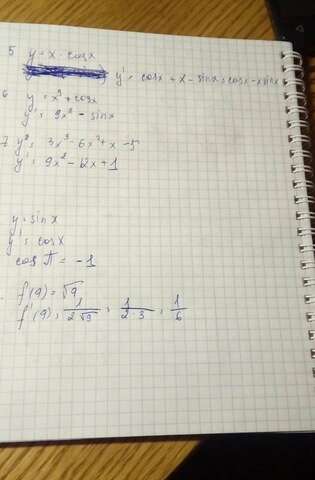 5 y = x · cosx
y' = cosx + x - sinx = cosx - x sinx
6 y = x³ + cosx
y' = 9x² - sinx
7 y² = 3x³ - 6x² + x - 5
y' = 9x² - 12x + 1
y = sinx
y' = cosx
cos π = -1
f(9) = √9
f'(9) = 1/2√9 = 1/2·3 = 1/6